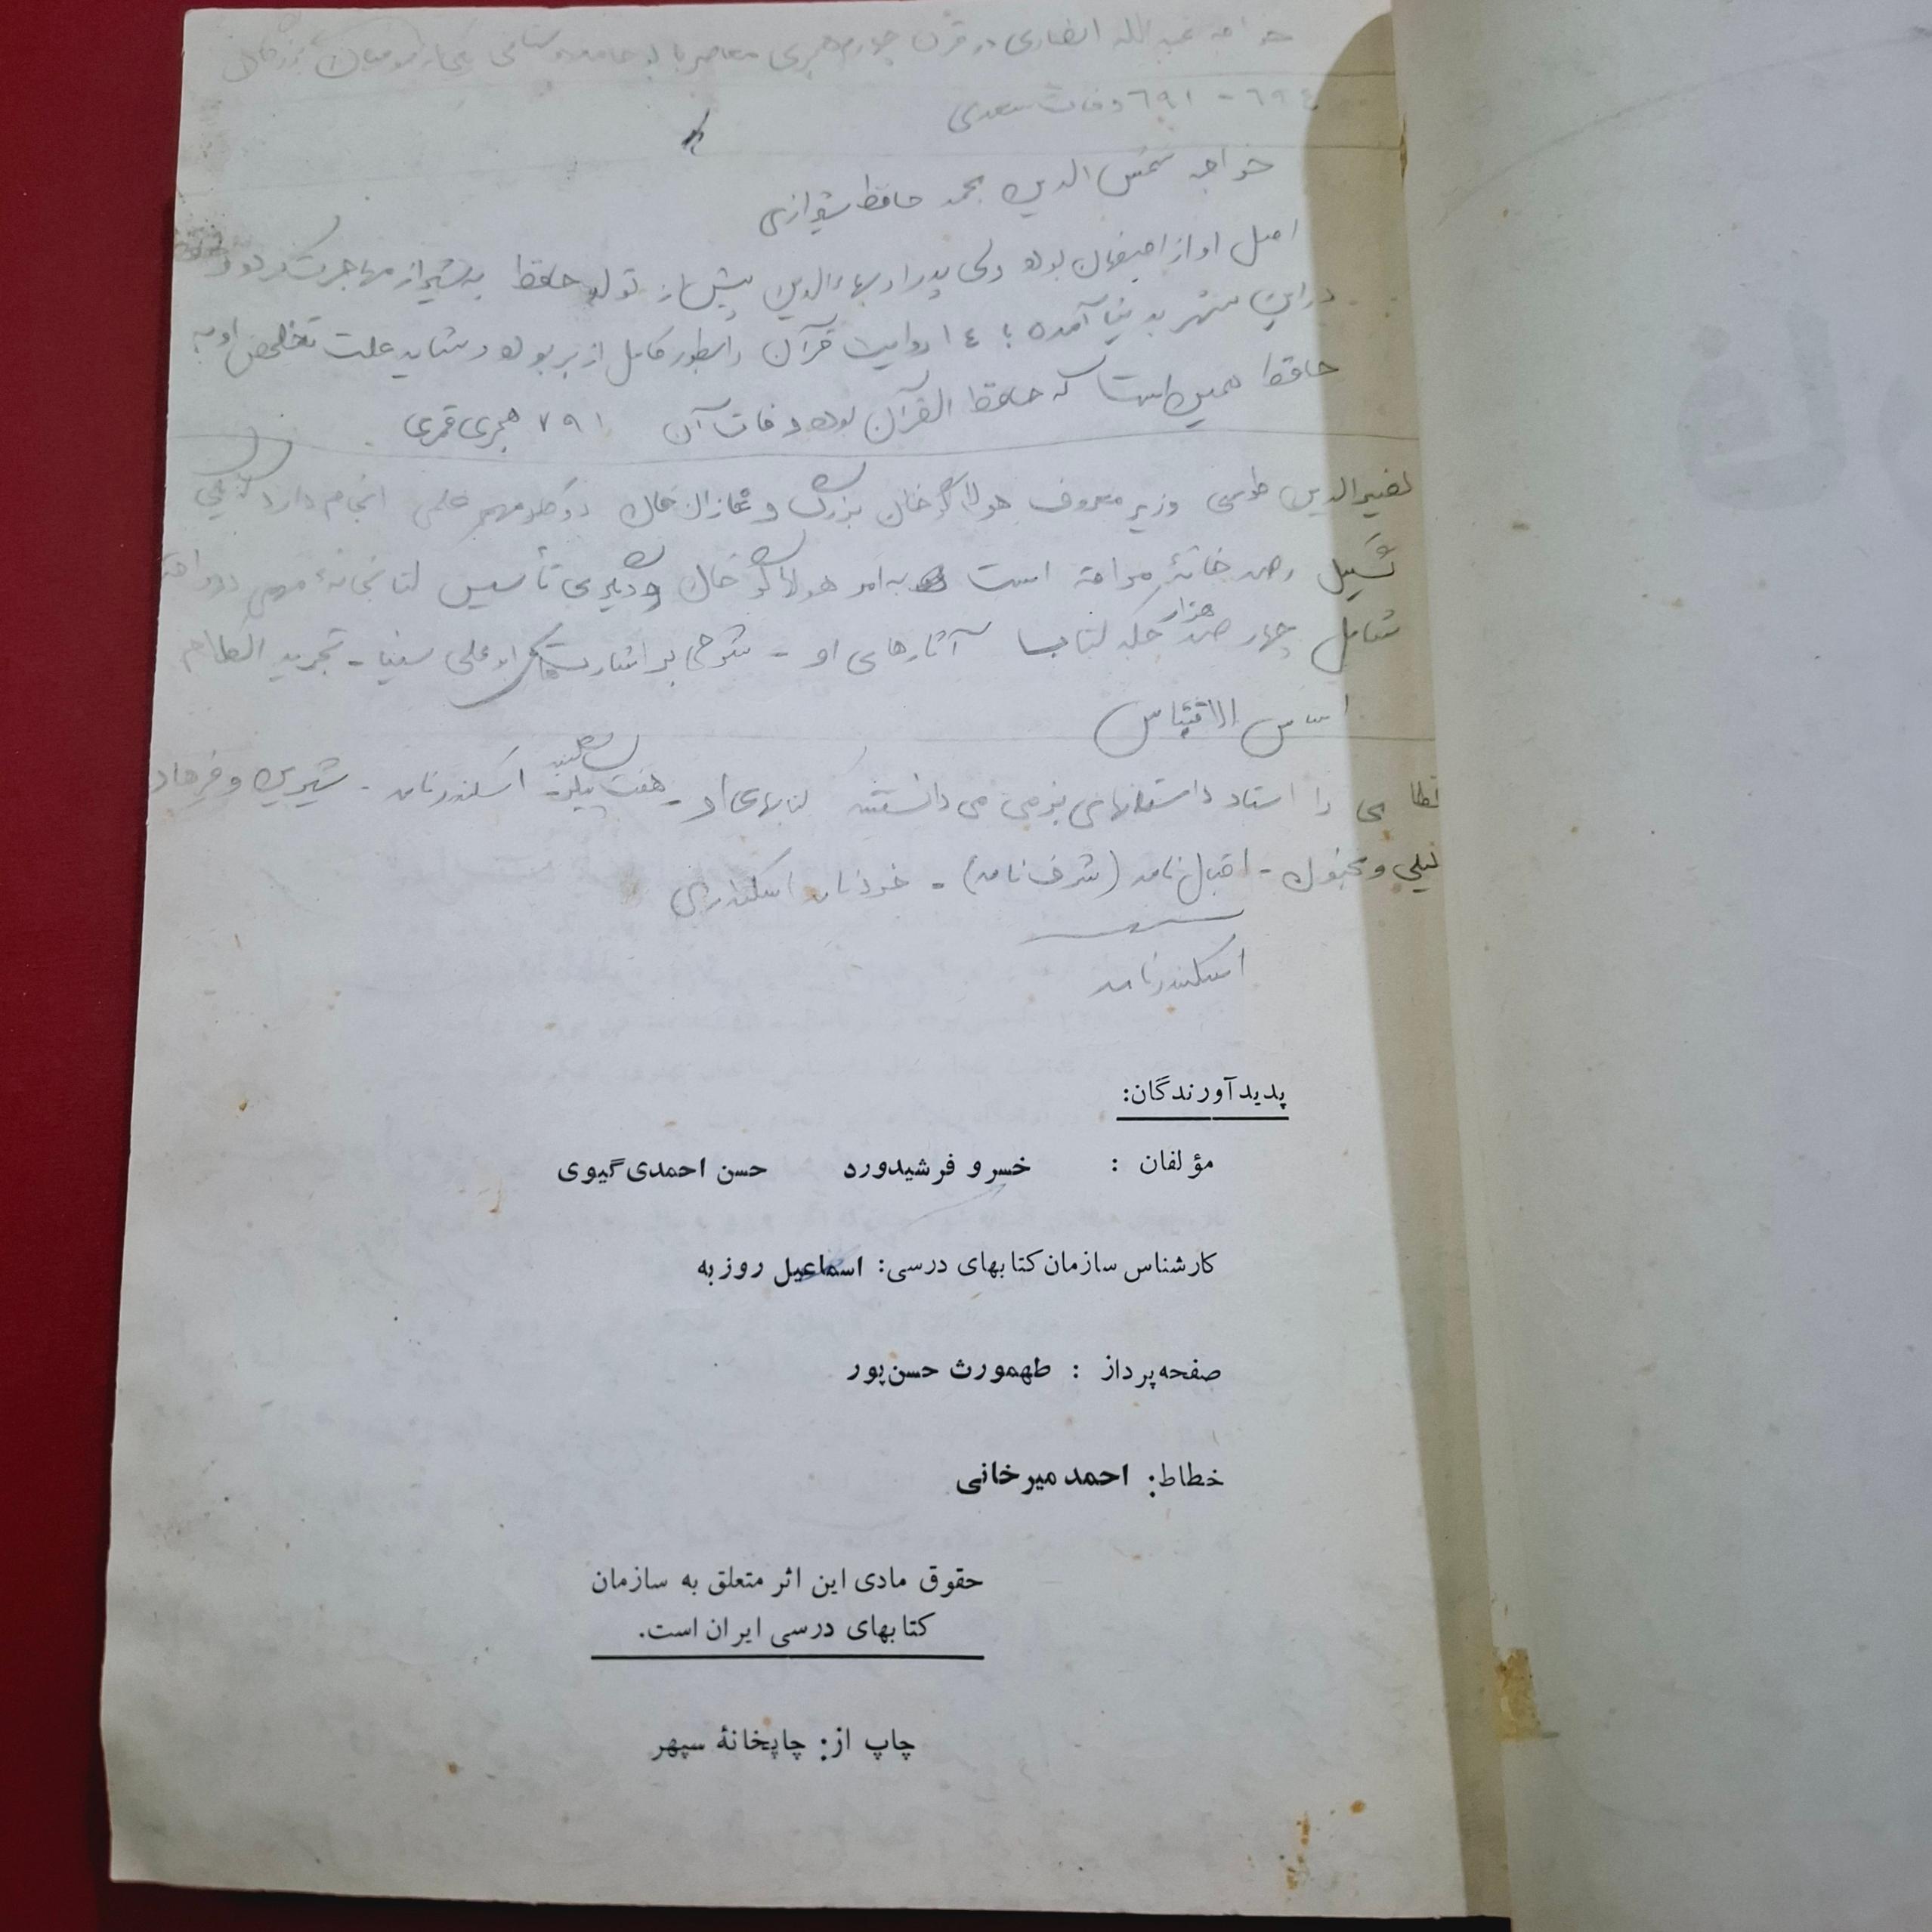 خواجه عبدالله انصاری در قرن چهارم هجری معاصر با
٦٩٤ - ٦٩١ وفات سعدی
خواجه شمس الدین محمد حافظ شیرازی
اصل او از اصفهان بوده ولی پدر او بهاءالدین پیش از تولد حافظ به شیراز مهاجرت کرد و
در این شهر بدنیا آمده با ١٤ روایت قرآن را بطور کامل از بر بوده و شاید علت تخلص او به
حافظ همین است که حافظ القرآن بوده وفات آن ٧٩١ هجری قمری
نصیرالدین طوسی وزیر معروف هولاگو خان بزرگ و دو کار مهم علمی انجام داد یکی
تشکیل رصد خانهٔ مراغه است به امر هولاگو خان و دیگری تأسیس کتابخانهٔ مهمی در مراغه
شامل چهار صد هزار جلد کتاب آثارهای او - شرحی بر اشارات ابوعلی سینا - تجرید الکلام
اساس الاقتباس
نظامی را استاد داستانهای بزمی می دانستند کتابهای او - هفت پیکر - اسکندرنامه - شیرین و فرهاد
لیلی و مجنون - اقبال نامه (شرف نامه) - خردنامه اسکندری
اسکندرنامه
پدیدآورندگان:
مؤلفان : خسرو فرشیدورد حسن احمدی گیوی
کارشناس سازمان کتابهای درسی: اسماعیل روزبه
صفحه پرداز : طهمورث حسن پور
خطاط: احمد میرخانی
حقوق مادی این اثر متعلق به سازمان
کتابهای درسی ایران است.
چاپ از: چاپخانهٔ سپهر